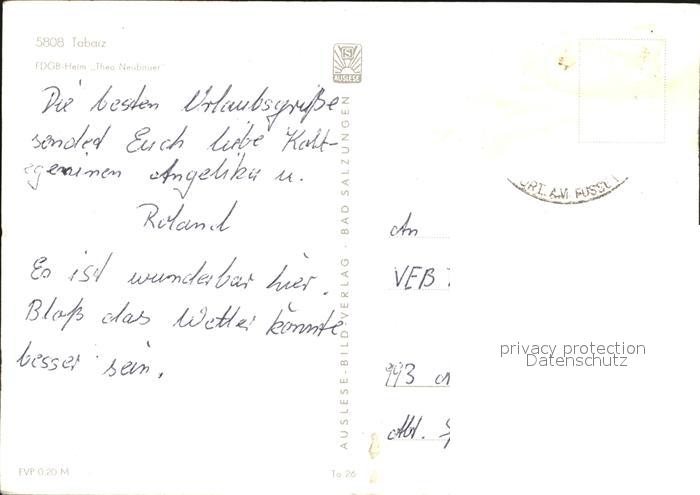 5808 Tabarz
FDGB-Heim „Theo Neubauer"
Die besten Urlaubsgrüße
sended Euch liebe Kolle-
geninen Angelika u.
Roland
Es ist wunderbar hier.
Bloß das Wetter könnte
besser sein.
EVP 0,20 M
AUSLESE
AUSLESE-BILD-VERLAG · BAD SALZUNGEN
To 26
ORT AM FUSSE
An
VEB
993
Abt.
privacy protection
Datenschutz